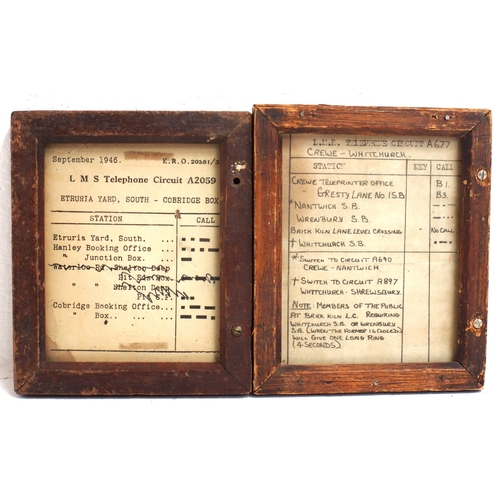 September 1946. E.R.O. 20581/5
L M S Telephone Circuit A2059
ETRURIA YARD, SOUTH - COBRIDGE BOX
STATION CALL
Etruria Yard, South. ...
Hanley Booking Office ...
" Junction Box. ...
Waterloo Rd Shelton Deep
Pit Sdg Box
" " Shelton Deep
Pit S.P.
Cobridge Booking Office...
" Box.. ...
L.M.S. TELEPHONE CIRCUIT A677
CREWE - WHITCHURCH.
STATION KEY CALL
CREWE TELEPRINTER OFFICE B1.
" GRESTY LANE No.1 S.B B3.
* NANTWICH S.B.
WRENBURY S.B.
BRICK KILN LANE LEVEL CROSSING NO CALL
† WHITCHURCH S.B
* SWITCH TO CIRCUIT A690
CREWE - NANTWICH
† SWITCH TO CIRCUIT A897
WHITCHURCH - SHREWSBURY.
NOTE: MEMBERS OF THE PUBLIC
AT BRICK KILN L.C. REQUIRING
WHITCHURCH S.B OR WRENBURY
S.B. (WHEN THE FORMER IS CLOSED)
WILL GIVE ONE LONG RING
(4 SECONDS)